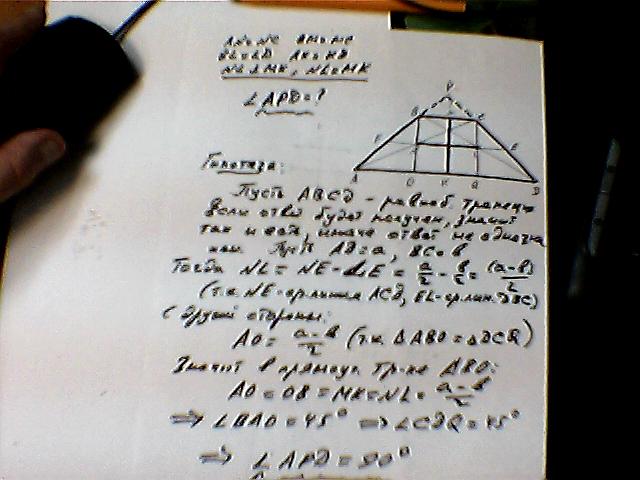 AN=NC BM=MC
BL=LD AK=KD
NL⊥MK, NL=MK
∠APD=?
P
B C
F E
A O K Q D
Гипотеза:
Пусть ABCD - равноб. трапеция
если ответ будет получен, значит
так и есть, иначе ответ не однозна
чен. Пусть AD=a, BC=b
Тогда NL = NE-LE = a/2 - b/2 = (a-b)/2
(т.к. NE-ср.линия ACD, EL-ср.лин. DBC)
С другой стороны:
AO = a-b/2 (т.к. ΔABO=ΔDCQ)
Значит в прямоуг. тр-ке ABO:
AO=OB=MK=NL= a-b/2
⇒ ∠BAO=45° ⇒ ∠CDQ=45°
⇒ ∠APD=90°